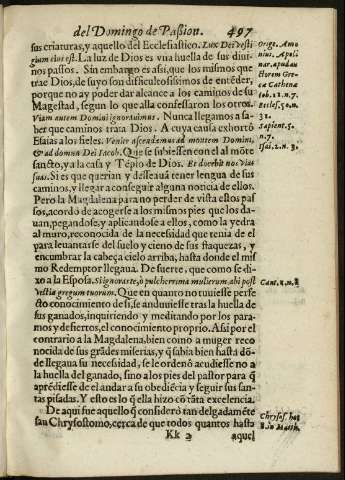 del Domingo de Passion. 497
sus criaturas, y aquello del Ecclesiastico. Lux Dei vesti
gium eius est. La luz de Dios es vna huella de sus diui-
nos passos. Sin embargo es assi, que los mismos que
trae Dios, de suyo son dificultosissimos de entēder,
porque no ay poder dar alcance a los caminos de su
Magestad, segun lo que alla confessaron los otros.
Viam autem Domini ignorauimus. Nunca llegamos a sa-
ber que caminos trata Dios. A cuya causa exhortò
Esaias a los fieles. Venite ascendamus ad montem Domini,
& ad domum Dei Iacob. Que se subiessen con el al mōte
sancto, y a la casa y Tēplo de Dios. Et docebit nos vias
suas. Si es que querian y desseauā tener lengua de sus
caminos, y llegar a conseguir alguna noticia de ellos.
Pero la Magdalena para no perder de vista estos pas
sos, acordò de acogerse a los mismos pies que los da-
uan, pegandose, y aplicandose a ellos, como la yedra
al muro, reconocida de la necessidad que tenia de el
para leuantarse del suelo y cieno de sus flaquezas, y
encumbrar la cabeça cielo arriba, hasta donde el mis
mo Redemptor llegaua. De fuerte, que como se di-
xo a la Esposa. Si ignoras te, ò pulcherrima mulierum, abi post
vestigia gregum tuorum. Que en quanto no tuuiesse perfe
cto conocimiento de si, se anduuiesse tras la huella de
sus ganados, inquiriendo y meditando por los para-
mos y desiertos, el conocimiento proprio. Assi por el
contrario a la Magdalena, bien como a muger reco
nocida de sus grādes miserias, y q̄ sabia bien hasta dō-
de llegaua su necessidad, se le ordenò acudiesse no a
la huella del ganado, sino a los pies del pastor para q̄
aprēdiesse de el andar a su obediēcia y seguir sus san-
tas pisadas. Y esto es lo q̄ ella hizo cō rāta excelencia.
De aqui fue aquello q̄ considerò tan delgadamēte
san Chrysostomo, cerca de que todos quantos hasta
Kk 2 aquel
Orige. Amo
nius. Apoli
nar. apud au
ctorem Gre-
ca Cathenæ
Iob. 12. n. 7.
Eccles. 50. n.
31.
Sapient. 5.
n. 7.
Isai. 2. n. 3.
Cant. 1. n. 8
Chrysos. ho.
in Matth.